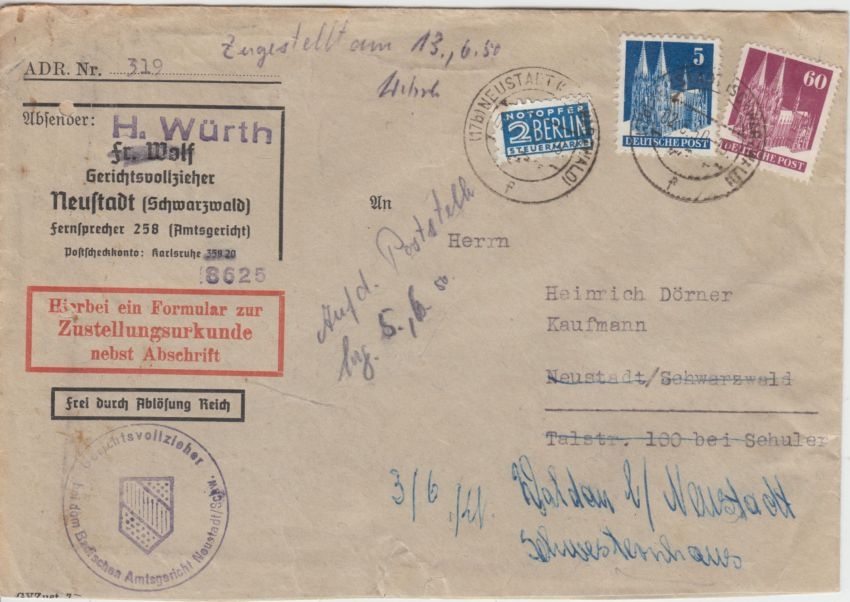 Zugestellt am 13., 6. 50
ADR. Nr. 319
Absender:
H. Würth
Fr. Wolf
Gerichtsvollzieher
Neustadt (Schwarzwald)
Fernsprecher 258 (Amtsgericht)
Postscheckkonto: Karlsruhe 359 20
8625
(17b) NEUSTADT
NOTOPFER
2 BERLIN
STEUERMARKE
5
DEUTSCHE POST
60
DEUTSCHE POST
An
Herrn
Auf d. Poststelle
5., 6. 50.
Heinrich Dörner
Kaufmann
Neustadt/Schwarzwald
Talstr. 100 bei Schuler
Hierbei ein Formular zur
Zustellungsurkunde
nebst Abschrift
Frei durch Ablösung Reich
Gerichtsvollzieher
bei dem Badischen Amtsgericht Neustadt/Schw.
3/6
Waldau b/ Neustadt
Schwesternhaus
GVZust